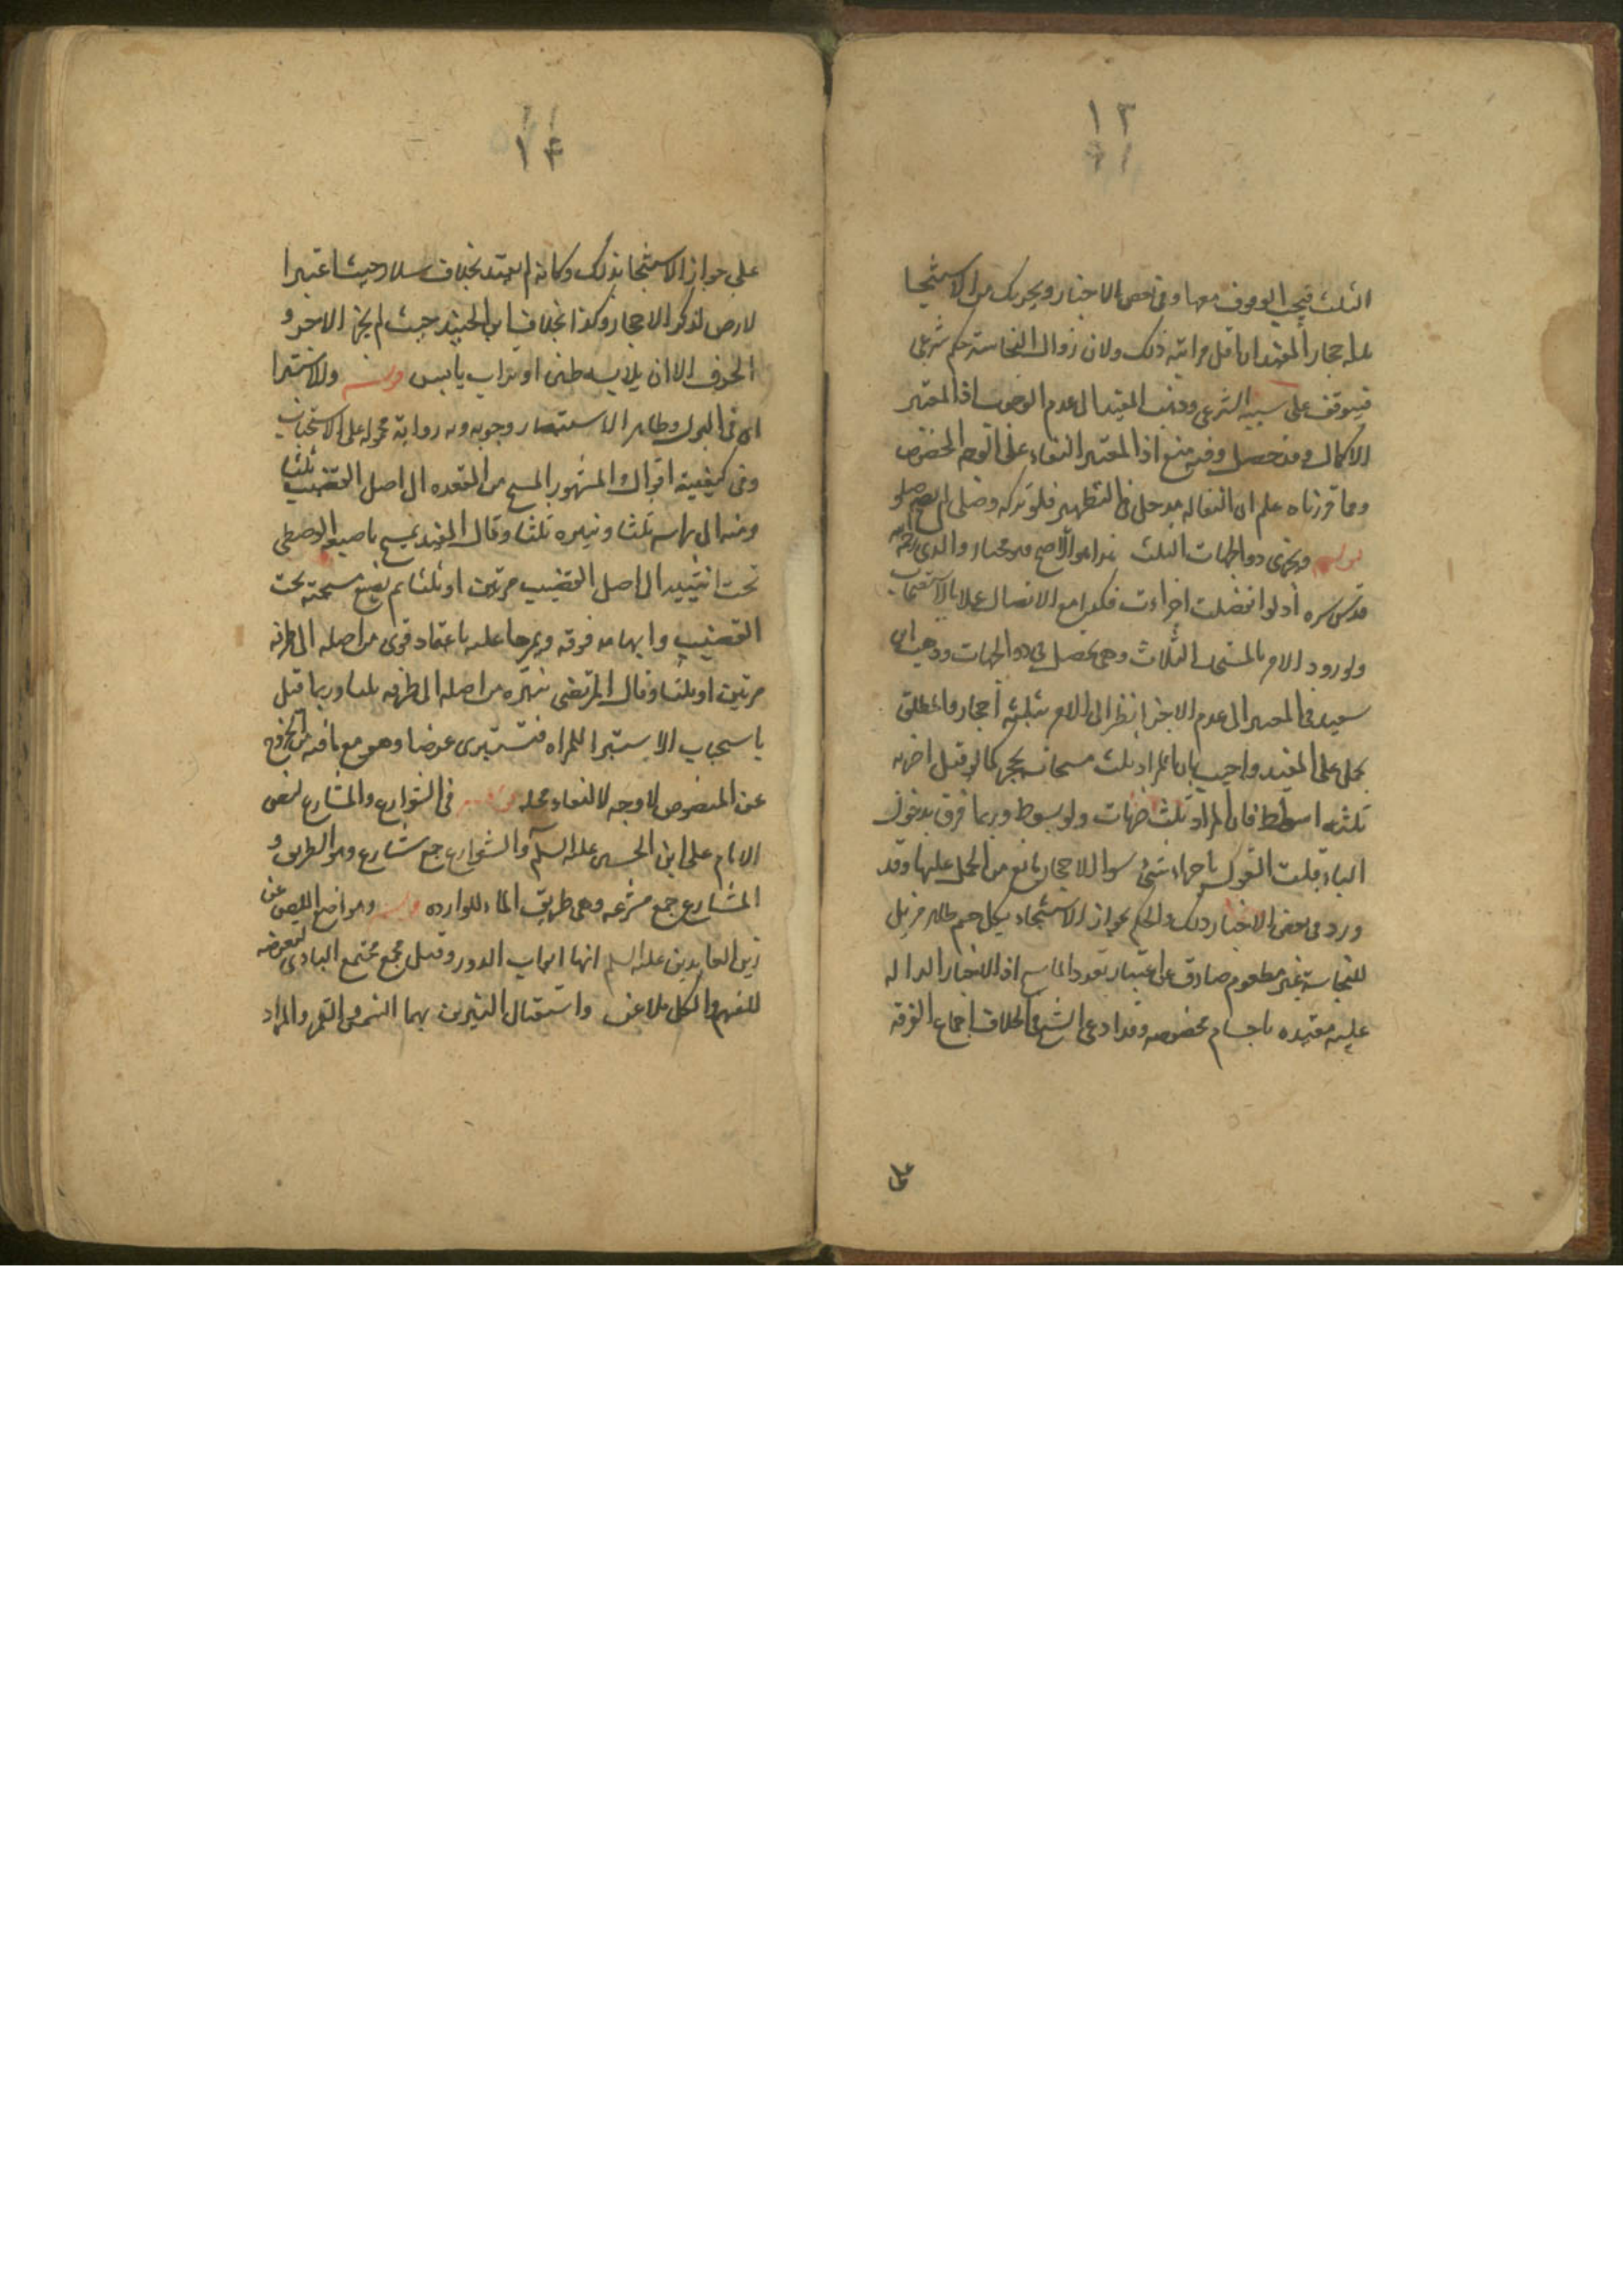 ١٣
الثلث فيجب الوقوف معها وفى بعض الاخبار ويجزيك من الاستنجا
ثلثه احجار المفيد ان اقل مراتبه ذلك ولان زوال النجاسة حكم شرعى
فيتوقف على سببه الشرعى وذهب المفيد الى عدم الوجوب اذ المعتبر
الاكمال وقد حصل وفيه منع اذ المعتبر النقاء على الوجه المخصوص
ومما قررناه علم ان النقاله مدخل فى التطهير فلو تركه وصلى لم يصح
قوله ويجزى ذو الجهات الثلث هذا هو الاصح وهو مختار والدى
قدس سره اذ لو انفصلت اجزاءت فكذا مع الاتصال عملا بالاستصحاب
ولورود الامر بالمسحات الثلاث وهى تحصل بذو الجهات وذهب ابن
سعيد فى المعتبر الى عدم الاجزا نظرا الى الامر بثلثه احجار والمطلق
يحمل على المقيد واجيب بان المراد ثلث مسحات بحجر كما لو قيل اضربه
ثلثه اسواط فان المراد ثلث ضربات ولو بسوط وربما فرق بدخول
الباء قلت القول باجزاء شئ سوا الاحجار مانع من الحمل عليها وقد
ورد فى بعض الاخبار ذلك والحكم بجواز الاستنجاء بكل جسم طاهر مزيل
للنجاسة غير مطعوم صادق عن اعتبار تعدد الماسح اذ الاخبار الداله
عليه مقيده باجسام مخصوصه وقد ادعى الشيخ فى الخلاف اجماع الفرقه
على
١٤
على جواز الاستنجا بذلك وكانه لم يعتد بخلاف سلار حيث اعتبر ا
لارض لذكر الاحجار وكذا بخلاف ابن الجنيد حيث لم يجز الاجر و
الخزف الا ان يلابسه طين او تراب يابس قوله والاستبرا
اى فى البول وظاهر الاستبصار وجوبه وبه رواية محموله على الاستحباب
وفى كيفيته اقوال المشهور المسح من المقعده الى اصل القضيب ثلثا
ومنه الى راسه ثلثا ونتره ثلثا وقال المفيد يمسح باصبعه الوسطى
تحت انثييه الى اصل القضيب مرتين او ثلثا ثم يضع مسبحته تحت
القضيب وابهامه فوقه ويمرها عليه باعتماد قوى من اصله الى طرفه
مرتين او ثلثا وقال المرتضى ينتره من اصله الى طرفه ثلثا وربما قيل
باستحباب الاستبرا للمراه فتستبرى عرضا وهو مع ما فيه من الخروج
عن المنصوص لا وجه له لتعدد محله قوله فى الشوارع والمشارع لنهى
الامام على ابن الحسين عليه السلم والشوارع جمع شارع وهو الطريق و
المشارع جمع مشرعه وهى طريق الماء للوارده قوله ومواضع اللعن عن
زين العابدين عليه السلم انها ابواب الدور وقيل مجمع مجتمع النادى لتعرضه
للعنهم والكل ملاعن واستقبال النيرين بهما الشمس والقمر والمراد